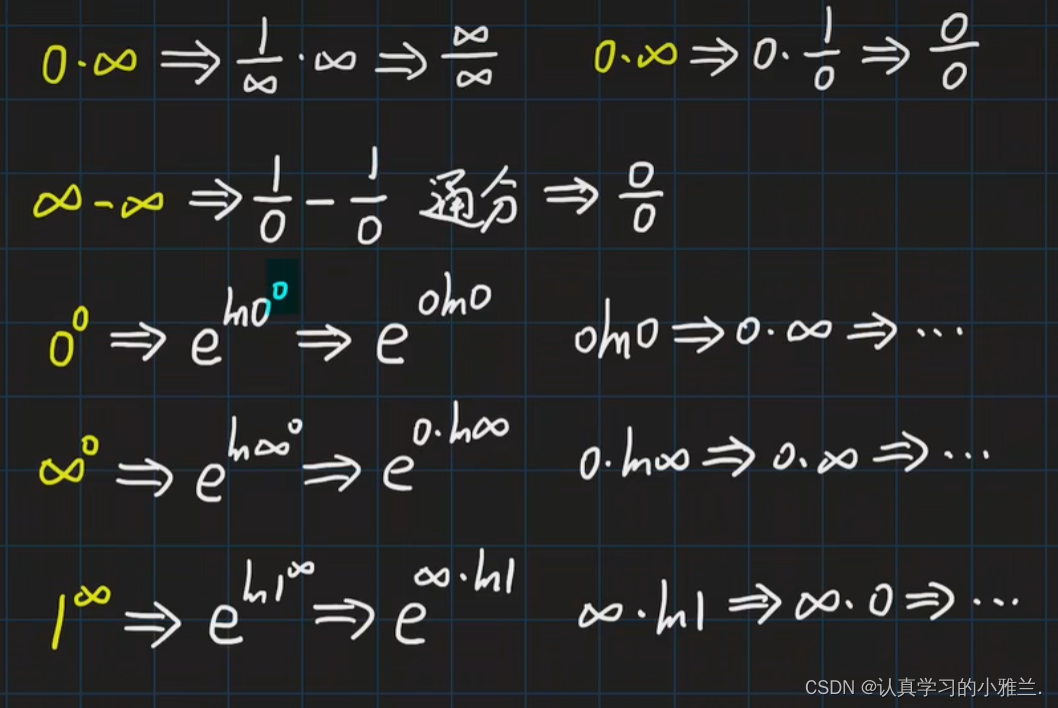 0·∞ ⇒ 1/∞ · ∞ ⇒ ∞/∞ 0·∞ ⇒ 0· 1/0 ⇒ 0/0
∞-∞ ⇒ 1/0 - 1/0 通分 ⇒ 0/0
0^0 ⇒ e^{ln0^0} ⇒ e^{0ln0} 0ln0 ⇒ 0·∞ ⇒ ···
∞^0 ⇒ e^{ln∞^0} ⇒ e^{0·ln∞} 0·ln∞ ⇒ 0·∞ ⇒ ···
1^∞ ⇒ e^{ln1^∞} ⇒ e^{∞·ln1} ∞·ln1 ⇒ ∞·0 ⇒ ···
CSDN @认真学习的小雅兰.